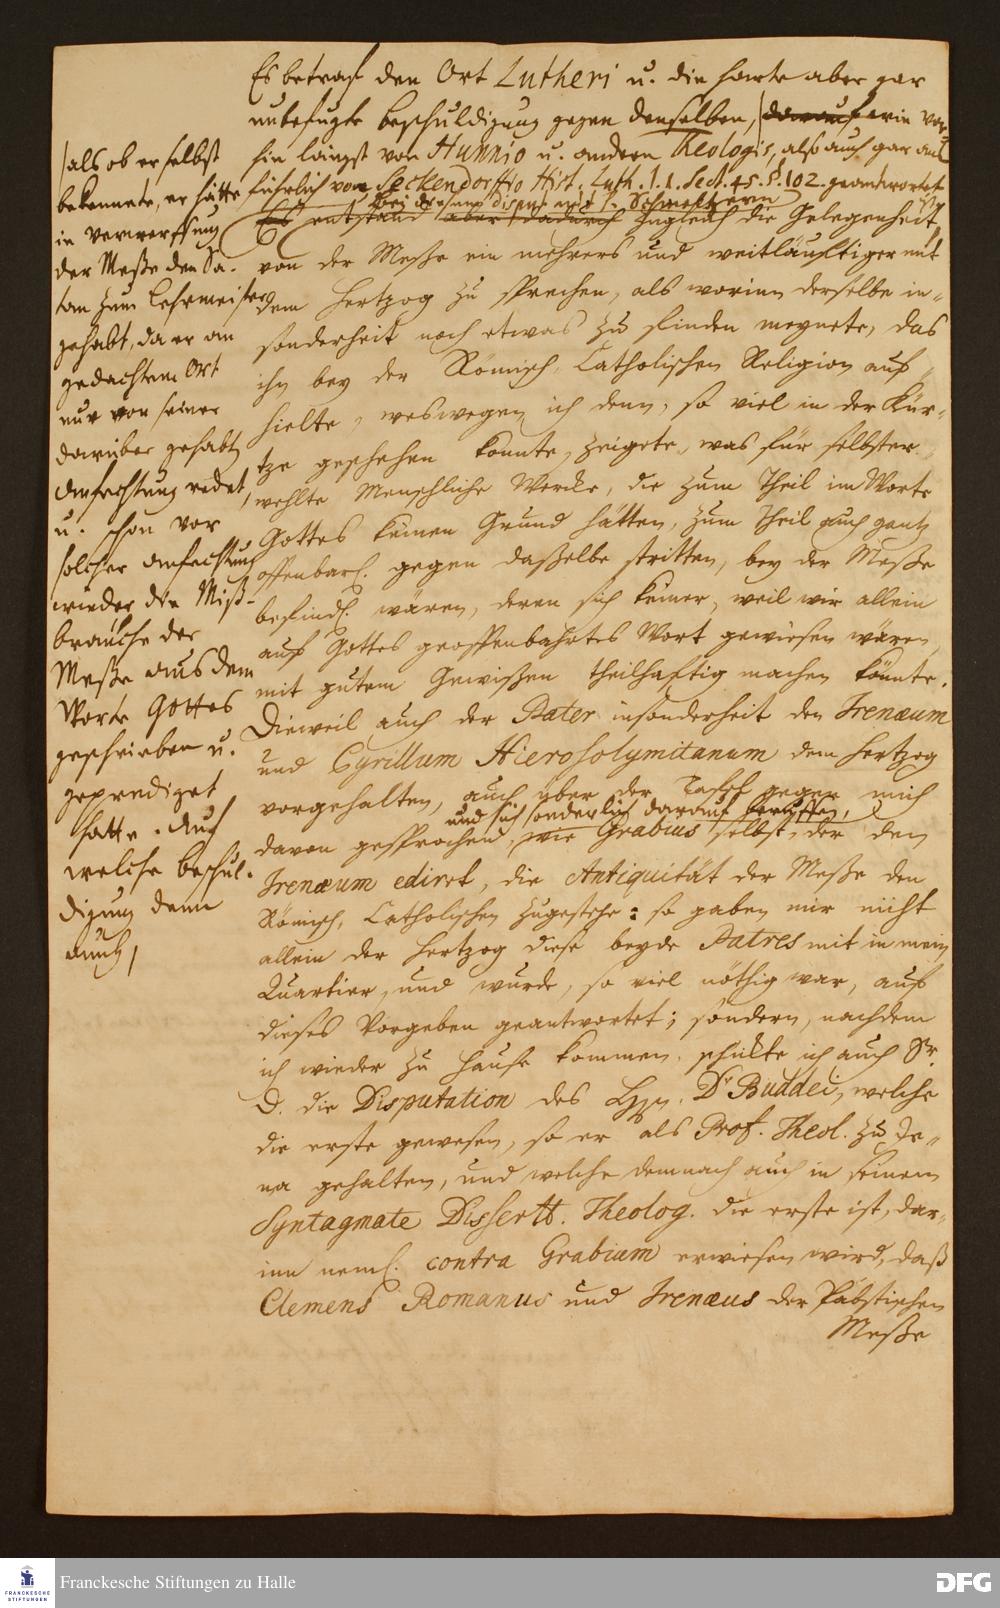 Es betraf den Ort Lutheri u. die harte aber gar
unbefugte beschuldigung gegen denselben, darauf wie vor
hin längst von Hunnio u. andern Theologis, alß auch gar aus
führlich von Seckendorffio Hist. Luth. l. 1. Sect. 45. §. 102. geantwortet
Es entstand aber dadurch zugleich die Gelegenheit,
von der Meße ein mehrers und weitläufftiger mit
dem Hertzog zu sprechen, als worinn derselbe in-
sonderheit noch etwas zu finden meynete, das
ihn bey der Römisch-Catholischen Religion auf-
hielte, weswegen ich denn, so viel in der Kür-
tze geschehen konnte, zeigete, was für selbster-
wehlte Menschliche Wercke, die zum Theil im Worte
Gottes keinen Grund hätten, zum Theil auch gantz
offenbarl. gegen daßelbe stritten, bey der Meße
befindl. wären, deren sich keiner, weil wir allein
auf Gottes geoffenbahrtes Wort gewiesen wären,
mit gutem Gewißen theilhafftig machen könnte.
Dieweil auch der Pater insonderheit den Irenæum
und Cyrillum Hierosolymitanum dem Hertzog
vorgehalten, auch über der Taffel gegen mich
und sich sonderlich darauf beruffen,
davon gesprochen, wie Grabius selbst, der den
Irenæum ediret, die Antiquität der Meße den
Römisch-Catholischen zugestehe: so gaben mir nicht
allein der Hertzog diese beyde Patres mit in mein
Quartier, und wurde, so viel nöthig war, auf
dieses Vorgeben geantwortet; sondern, nachdem
ich wieder zu Hause kommen, schickte ich auch Sr.
D. die Disputation des Hrn. Dr. Buddei, welche
die erste gewesen, so er als Prof. Theol. zu Je-
na gehalten, und welche demnach auch in seinem
Syntagmate Dissertt. Theolog. die erste ist, dar-
inn neml. contra Grabium erwiesen wird, daß
Clemens Romanus und Irenæus der Päbstischen
Meße
als ob er selbst
bekennete, er hätte
in Verwerffung
der Meße den Sa-
tan zum Lehrmeister
gehabt, da er am
gedachtem Ort
nur von seiner
darüber gehabten
Anfechtung redet,
u. schon vor
solcher Anfechtung
wieder die Miß-
bräuche der
Meße aus dem
Worte Gottes
geschrieben u.
geprediget
hatte. Auf
welche beschul-
digung denn
auch
FRANCKESCHE STIFTUNGEN
Franckesche Stiftungen zu Halle
DFG